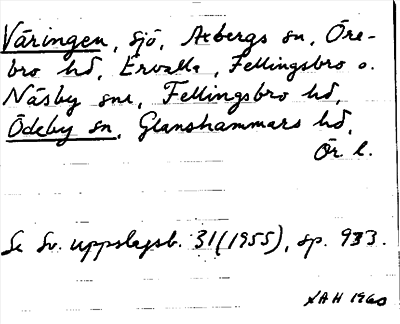 Väringen, sjö, Axbergs sn, Öre-
bro hd, Ervalla, Fellingsbro o.
Näsby snr, Fellingsbro hd,
Ödeby sn, Glanshammars hd,
Ör l.
Se Sv. uppslagsb. 31 (1955), sp. 933.
SAH 1960